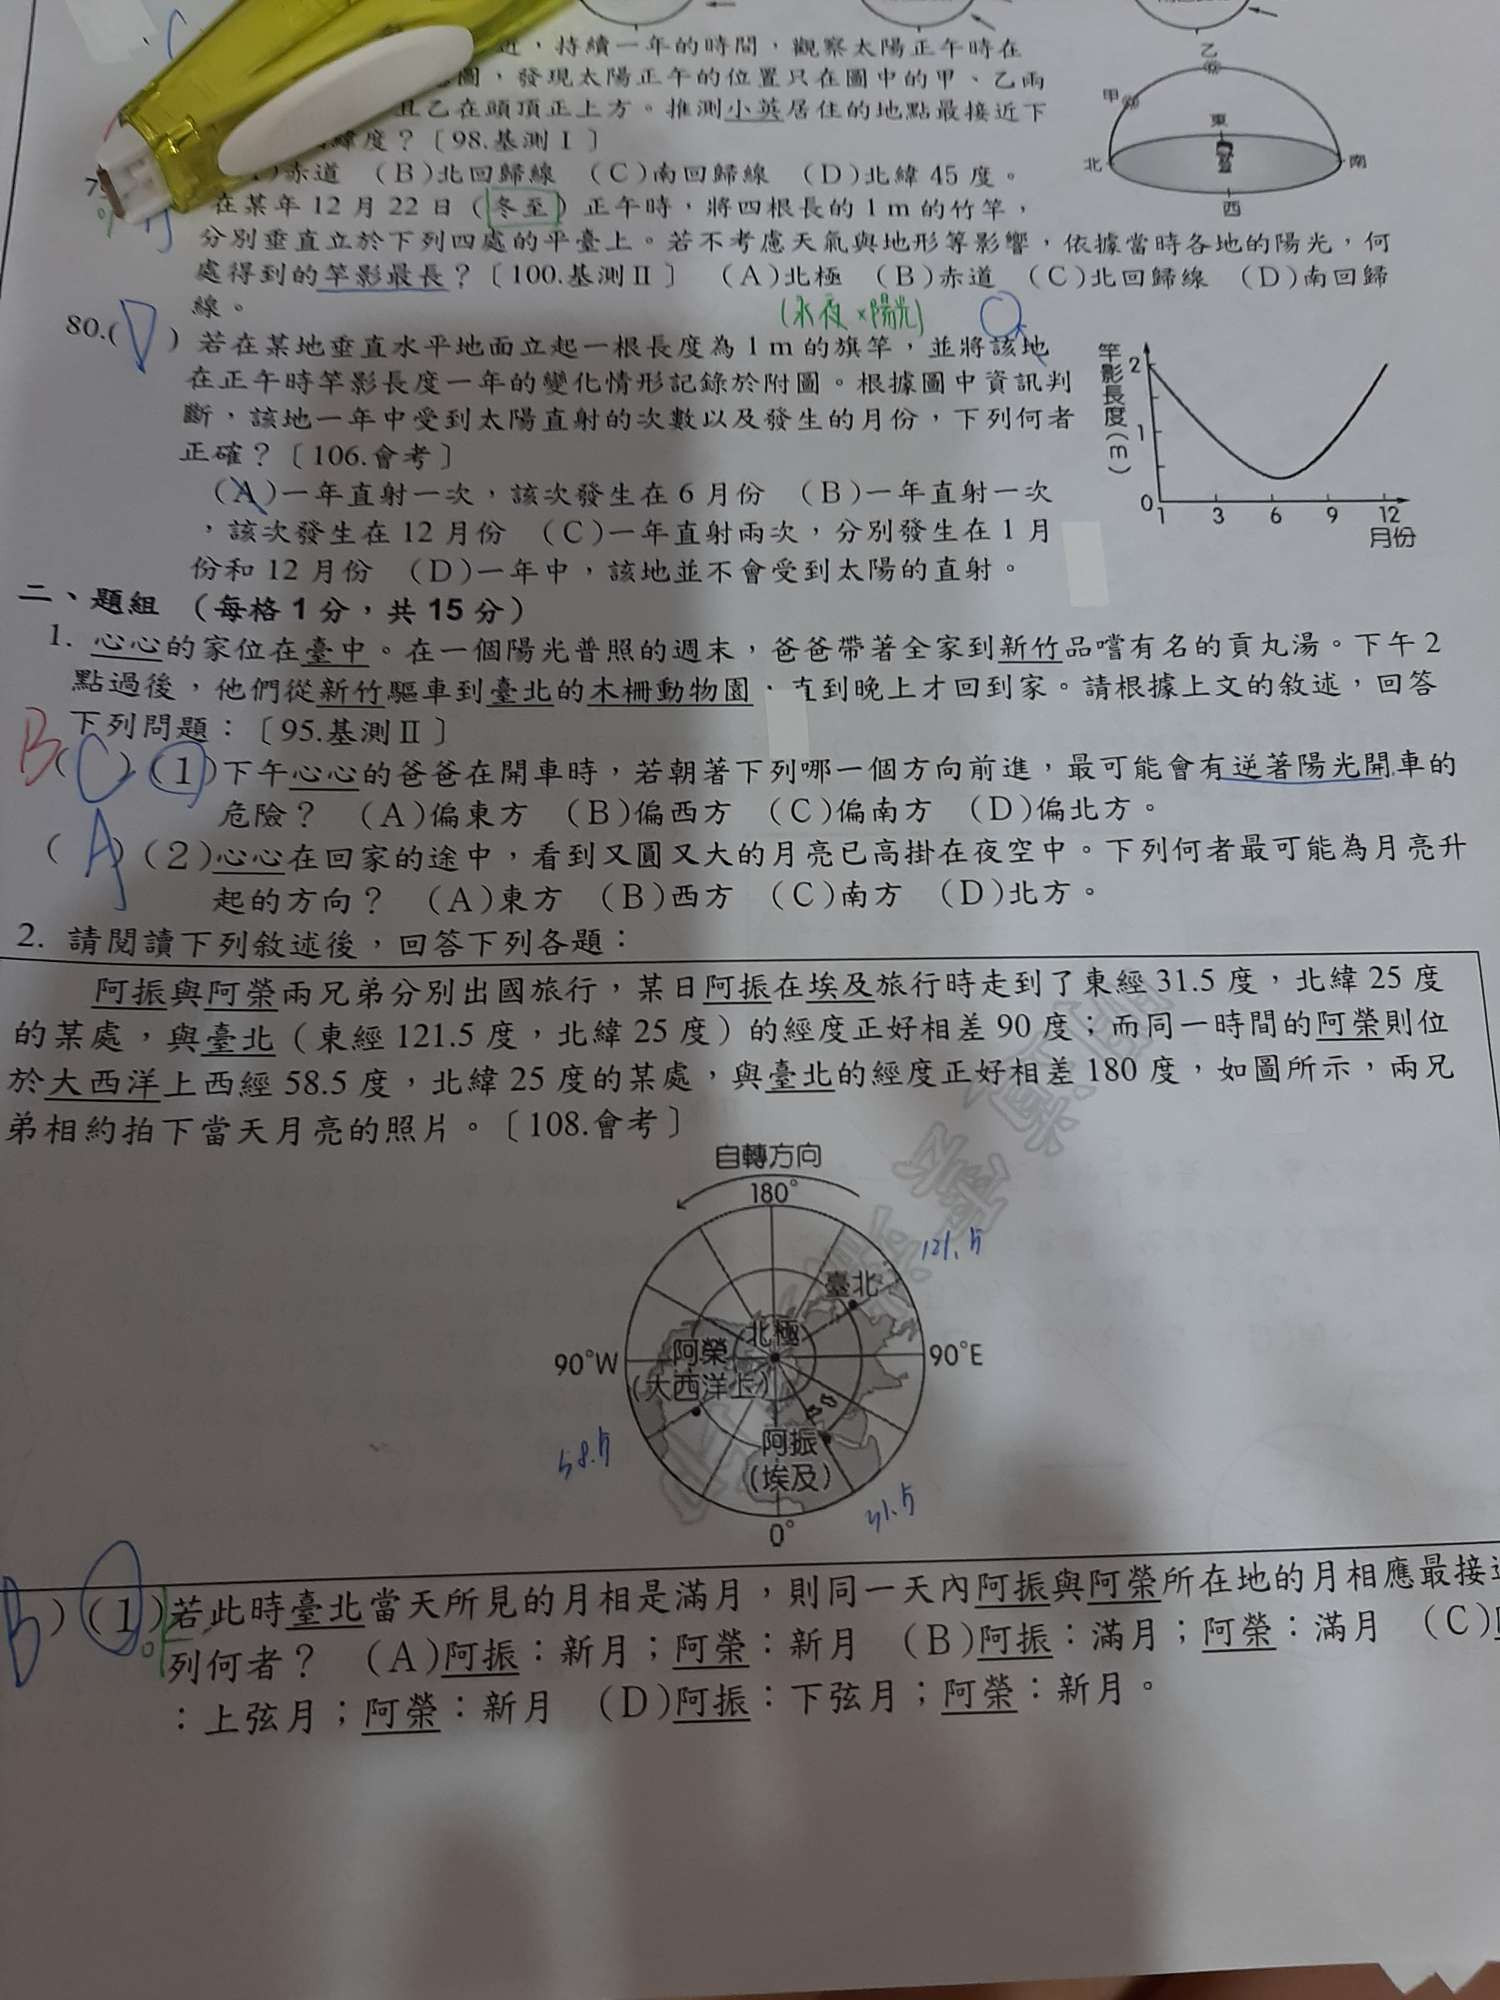 近，持續一年的時間，觀察太陽正午時在
圖，發現太陽正午的位置只在圖中的甲、乙兩
且乙在頭頂正上方。推測小英居住的地點最接近下
緯度？〔98.基測Ⅰ〕
赤道 (B)北回歸線 (C)南回歸線 (D)北緯45度。
乙
甲
東
北
南
西
在某年12月22日（冬至）正午時，將四根長的1m的竹竿，
分別垂直立於下列四處的平臺上。若不考慮天氣與地形等影響，依據當時各地的陽光，何
處得到的竿影最長？〔100.基測Ⅱ〕 (A)北極 (B)赤道 (C)北回歸線 (D)南回歸
線。
(永夜×陽光)
80.(D) 若在某地垂直水平地面立起一根長度為1m的旗竿，並將該地
在正午時竿影長度一年的變化情形記錄於附圖。根據圖中資訊判
斷，該地一年中受到太陽直射的次數以及發生的月份，下列何者
正確？〔106.會考〕
(A)一年直射一次，該次發生在6月份 (B)一年直射一次
，該次發生在12月份 (C)一年直射兩次，分別發生在1月
份和12月份 (D)一年中，該地並不會受到太陽的直射。
竿影長度(m)
2
1
0
1 3 6 9 12
月份
二、題組 （每格1分，共15分）
1. 心心的家位在臺中。在一個陽光普照的週末，爸爸帶著全家到新竹品嚐有名的貢丸湯。下午2
點過後，他們從新竹驅車到臺北的木柵動物園，直到晚上才回到家。請根據上文的敘述，回答
下列問題：〔95.基測Ⅱ〕
B (C) (1)下午心心的爸爸在開車時，若朝著下列哪一個方向前進，最可能會有逆著陽光開車的
危險？ (A)偏東方 (B)偏西方 (C)偏南方 (D)偏北方。
(A) (2)心心在回家的途中，看到又圓又大的月亮已高掛在夜空中。下列何者最可能為月亮升
起的方向？ (A)東方 (B)西方 (C)南方 (D)北方。
2. 請閱讀下列敘述後，回答下列各題：
阿振與阿榮兩兄弟分別出國旅行，某日阿振在埃及旅行時走到了東經31.5度，北緯25度
的某處，與臺北（東經121.5度，北緯25度）的經度正好相差90度；而同一時間的阿榮則位
於大西洋上西經58.5度，北緯25度的某處，與臺北的經度正好相差180度，如圖所示，兩兄
弟相約拍下當天月亮的照片。〔108.會考〕
自轉方向
180°
121.5
臺北
北極
90°W
阿榮
(大西洋上)
90°E
阿振
(埃及)
58.5
31.5
0°
B) (1)若此時臺北當天所見的月相是滿月，則同一天內阿振與阿榮所在地的月相應最接近
列何者？ (A)阿振：新月；阿榮：新月 (B)阿振：滿月；阿榮：滿月 (C)
：上弦月；阿榮：新月 (D)阿振：下弦月；阿榮：新月。